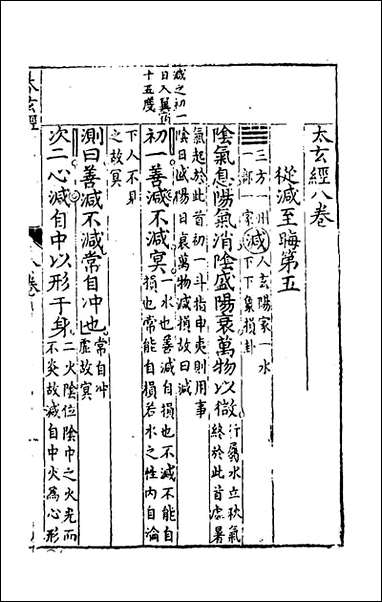 太玄經八卷
從減至晦第五
三方一州
一部一家
減
人玄陽家一水
下下象損卦
陰氣息陽氣消陰盛陽衰萬物以微
行屬水立秋氣
終於此首處暑
氣起於此首初一斗指申夷則用事
陰日盛陽日衰萬物減損故曰減
減之初一
日入翼
十五度
初一善減不減冥
一水也善減自損也不減不能自
損也常能自損若水之性内自淪
下人不見
之故冥
測曰善減不減常自冲也
常自冲
虚故冥
次二心減自中以形于身
二火陰位陰中之火光而
不炎故減自中火為心形
太玄經
八卷